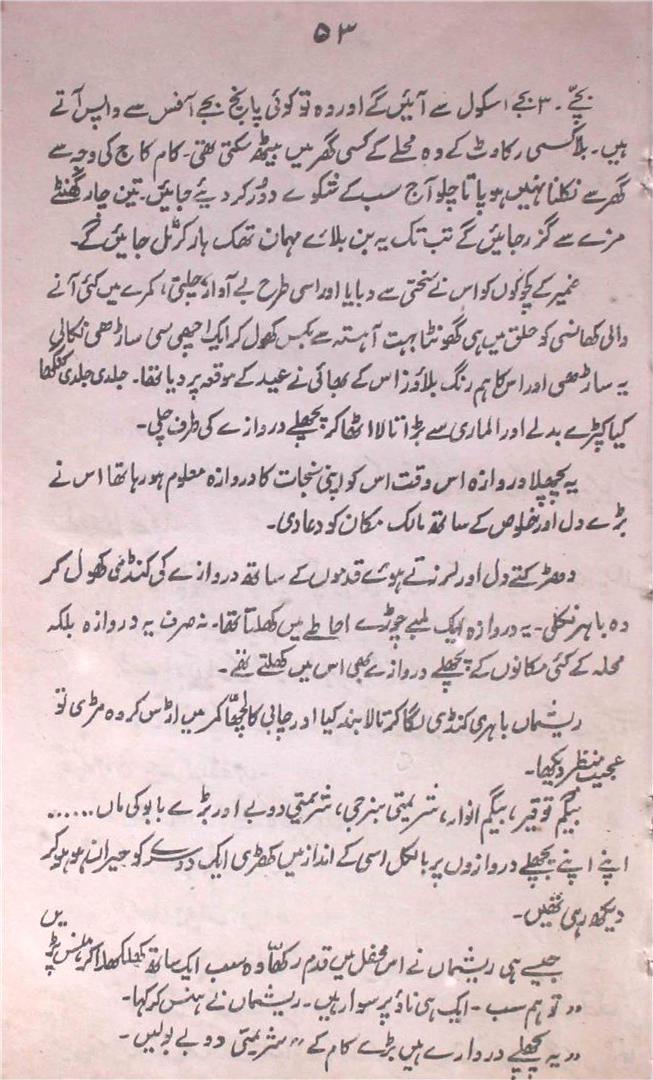 ۵۳
بچے ۔ ۳ بجے اسکول سے آئیں گے اور وہ تو کوئی پانچ بجے آفس سے واپس آتے
ہیں ۔ بلا کسی رکاوٹ کے وہ محلے کے کسی گھر میں بیٹھ سکتی تھی ۔ کام کاج کی وجہ سے
گھر سے نکلنا نہیں ہو پاتا چلو آج سب کے شکوے دور کر دیئے جائیں ۔ تین چار گھنٹے
مزے سے گزر جائیں گے تب تک یہ بن بلائے مہمان تھک ہار کر ٹل جائیں گے ۔
ضمیر کے کچوکوں کو اس نے سختی سے دبایا اور اسی طرح بے آواز چلتی ، کمرے میں گئی آنے
والی کھانسی کو حلق میں ہی گھونٹا بہت آہستہ سے بکس کھول کر ایک اچھی سی ساڑھی نکالی
یہ ساڑھی اور اس کا ہم رنگ بلاؤز اس کے بھائی نے عید کے موقعہ پر دیا تھا ۔ جلدی جلدی کنگھا
کیا کپڑے بدلے اور الماری سے بڑا تالا اٹھا کر پچھلے دروازے کی طرف چلی ۔
یہ پچھلا دروازہ اس وقت اس کو اپنی نجات کا دروازہ معلوم ہو رہا تھا اس نے
بڑے دل اور خلوص کے ساتھ مالک مکان کو دعا دی ۔
دھڑکتے دل اور لرزتے ہوئے قدموں کے ساتھ دروازے کی کنڈی کھول کر
وہ باہر نکلی ۔ یہ دروازہ ایک لمبے چوڑے احاطے میں کھلتا تھا ۔ نہ صرف یہ دروازہ بلکہ
محلہ کے کئی مکانوں کے پچھلے دروازے بھی اس میں کھلتے تھے ۔
ریشماں باہری کنڈی لگا کر تالا بند کیا اور چابی کا لچھا کمر میں اڑس کر وہ مڑی تو
عجیب منظر دیکھا ۔
بیگم توقیر ، بیگم انوار ، شریمتی بنرجی ، شریمتی دوبے اور بڑے بابو کی ماں ......
اپنے اپنے پچھلے دروازوں پر بالکل اسی کے انداز میں کھڑی ایک دوسرے کو حیران ہو ہو کر
دیکھ رہی تھیں ۔
جیسے ہی ریشماں نے اس محفل میں قدم رکھا وہ سب ایک ساتھ کھلکھلا کر ہنس پڑیں
” تو ہم سب ۔ ایک ہی ناؤ پر سوار ہیں ۔ ریشماں نے ہنس کر کہا ۔
” یہ پچھلے دروازے ہیں بڑے کام کے “ شریمتی دوبے بولیں ۔